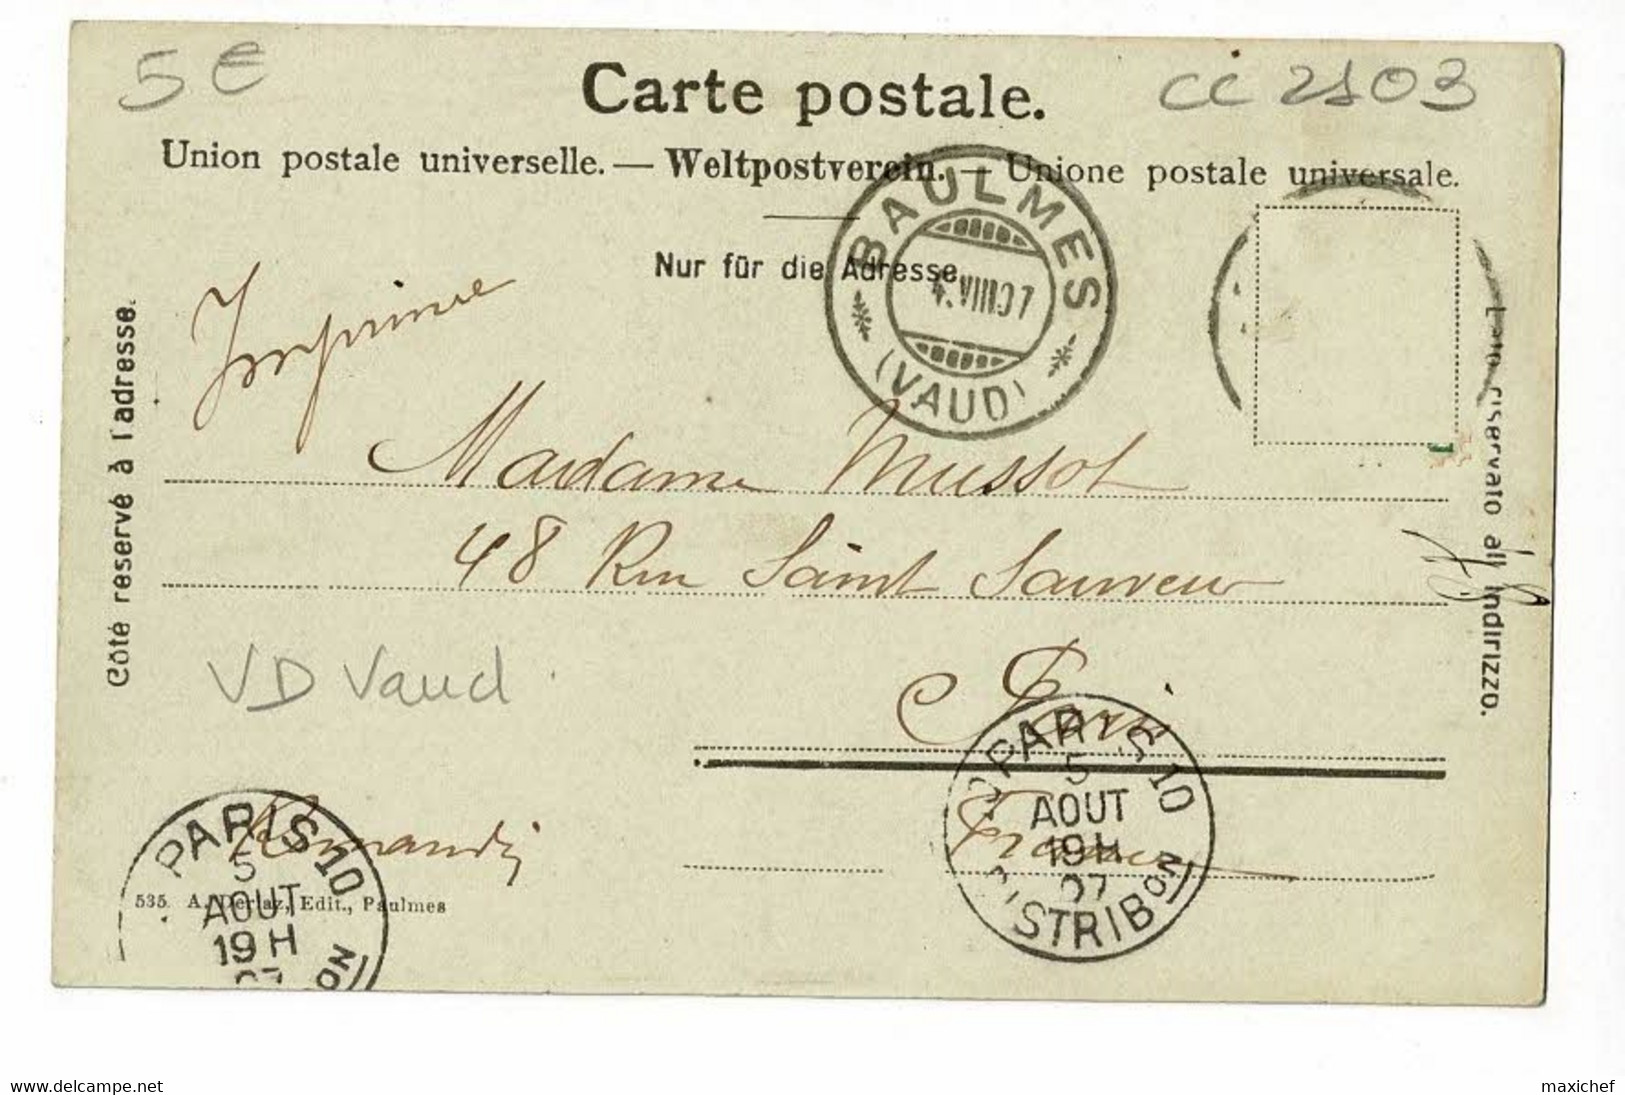 5 €
CC 2503
Carte postale.
Union postale universelle. — Weltpostverein. — Unione postale universale.
Nur für die Adresse.
BAULMES
4. VIII 07
(VAUD)
Côté reservé à l'adresse.
Lato riservato all indirizzo.
Imprimé
Madame Mussot
48 Rue Saint Sauveur
Paris
France
VD Vaud
PARIS 10
5
AOUT
19 H
07
ON
PARIS 10
5
AOUT
19 H
07
DISTRIBON
535. A. Deriaz, Edit., Baulmes
www.delcampe.net
maxichef